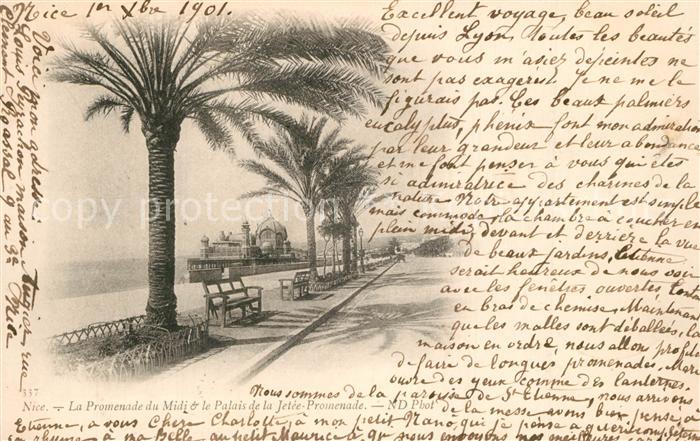 Nice 1er Xbre 1901.
Excellent voyage, beau soleil
depuis Lyon, toutes les beautés
que vous m'aviez dépeintes ne
sont pas exagérés Je ne me le
figurais pas. Les beaux palmiers
eucalyptus, phénix font mon admiration
par leur grandeur et leur abondance
et me font penser à vous qui êtes
si admiratrice des charmes de la
nature Notre appartement est simple
mais commode, la chambre à coucher en
plein midi, devant et derrière la vue
de beaux jardins, Etienne
serait heureux de nous voir
avec les fenêtres ouvertes tout
en bras de chemise, Maintenant
que les malles sont déballées, la
maison en ordre, nous allons profiter
de faire de longues promenades,
ouvre des yeux comme des lanternes.
Nous sommes de la paroisse de St Etienne, nous arrivons
de la messe avons bien pensé à
Etienne, a vous Chère Charlotte, à mon petit Nano, que je pense a
à ma Belle, au petit Maurice à qu nous envoyons nos
Voici mon adresse
Louis maison rue
Clément 9 au 3e Nice
copyright
337
Nice. — La Promenade du Midi & le Palais de la Jetée-Promenade. — ND Phot